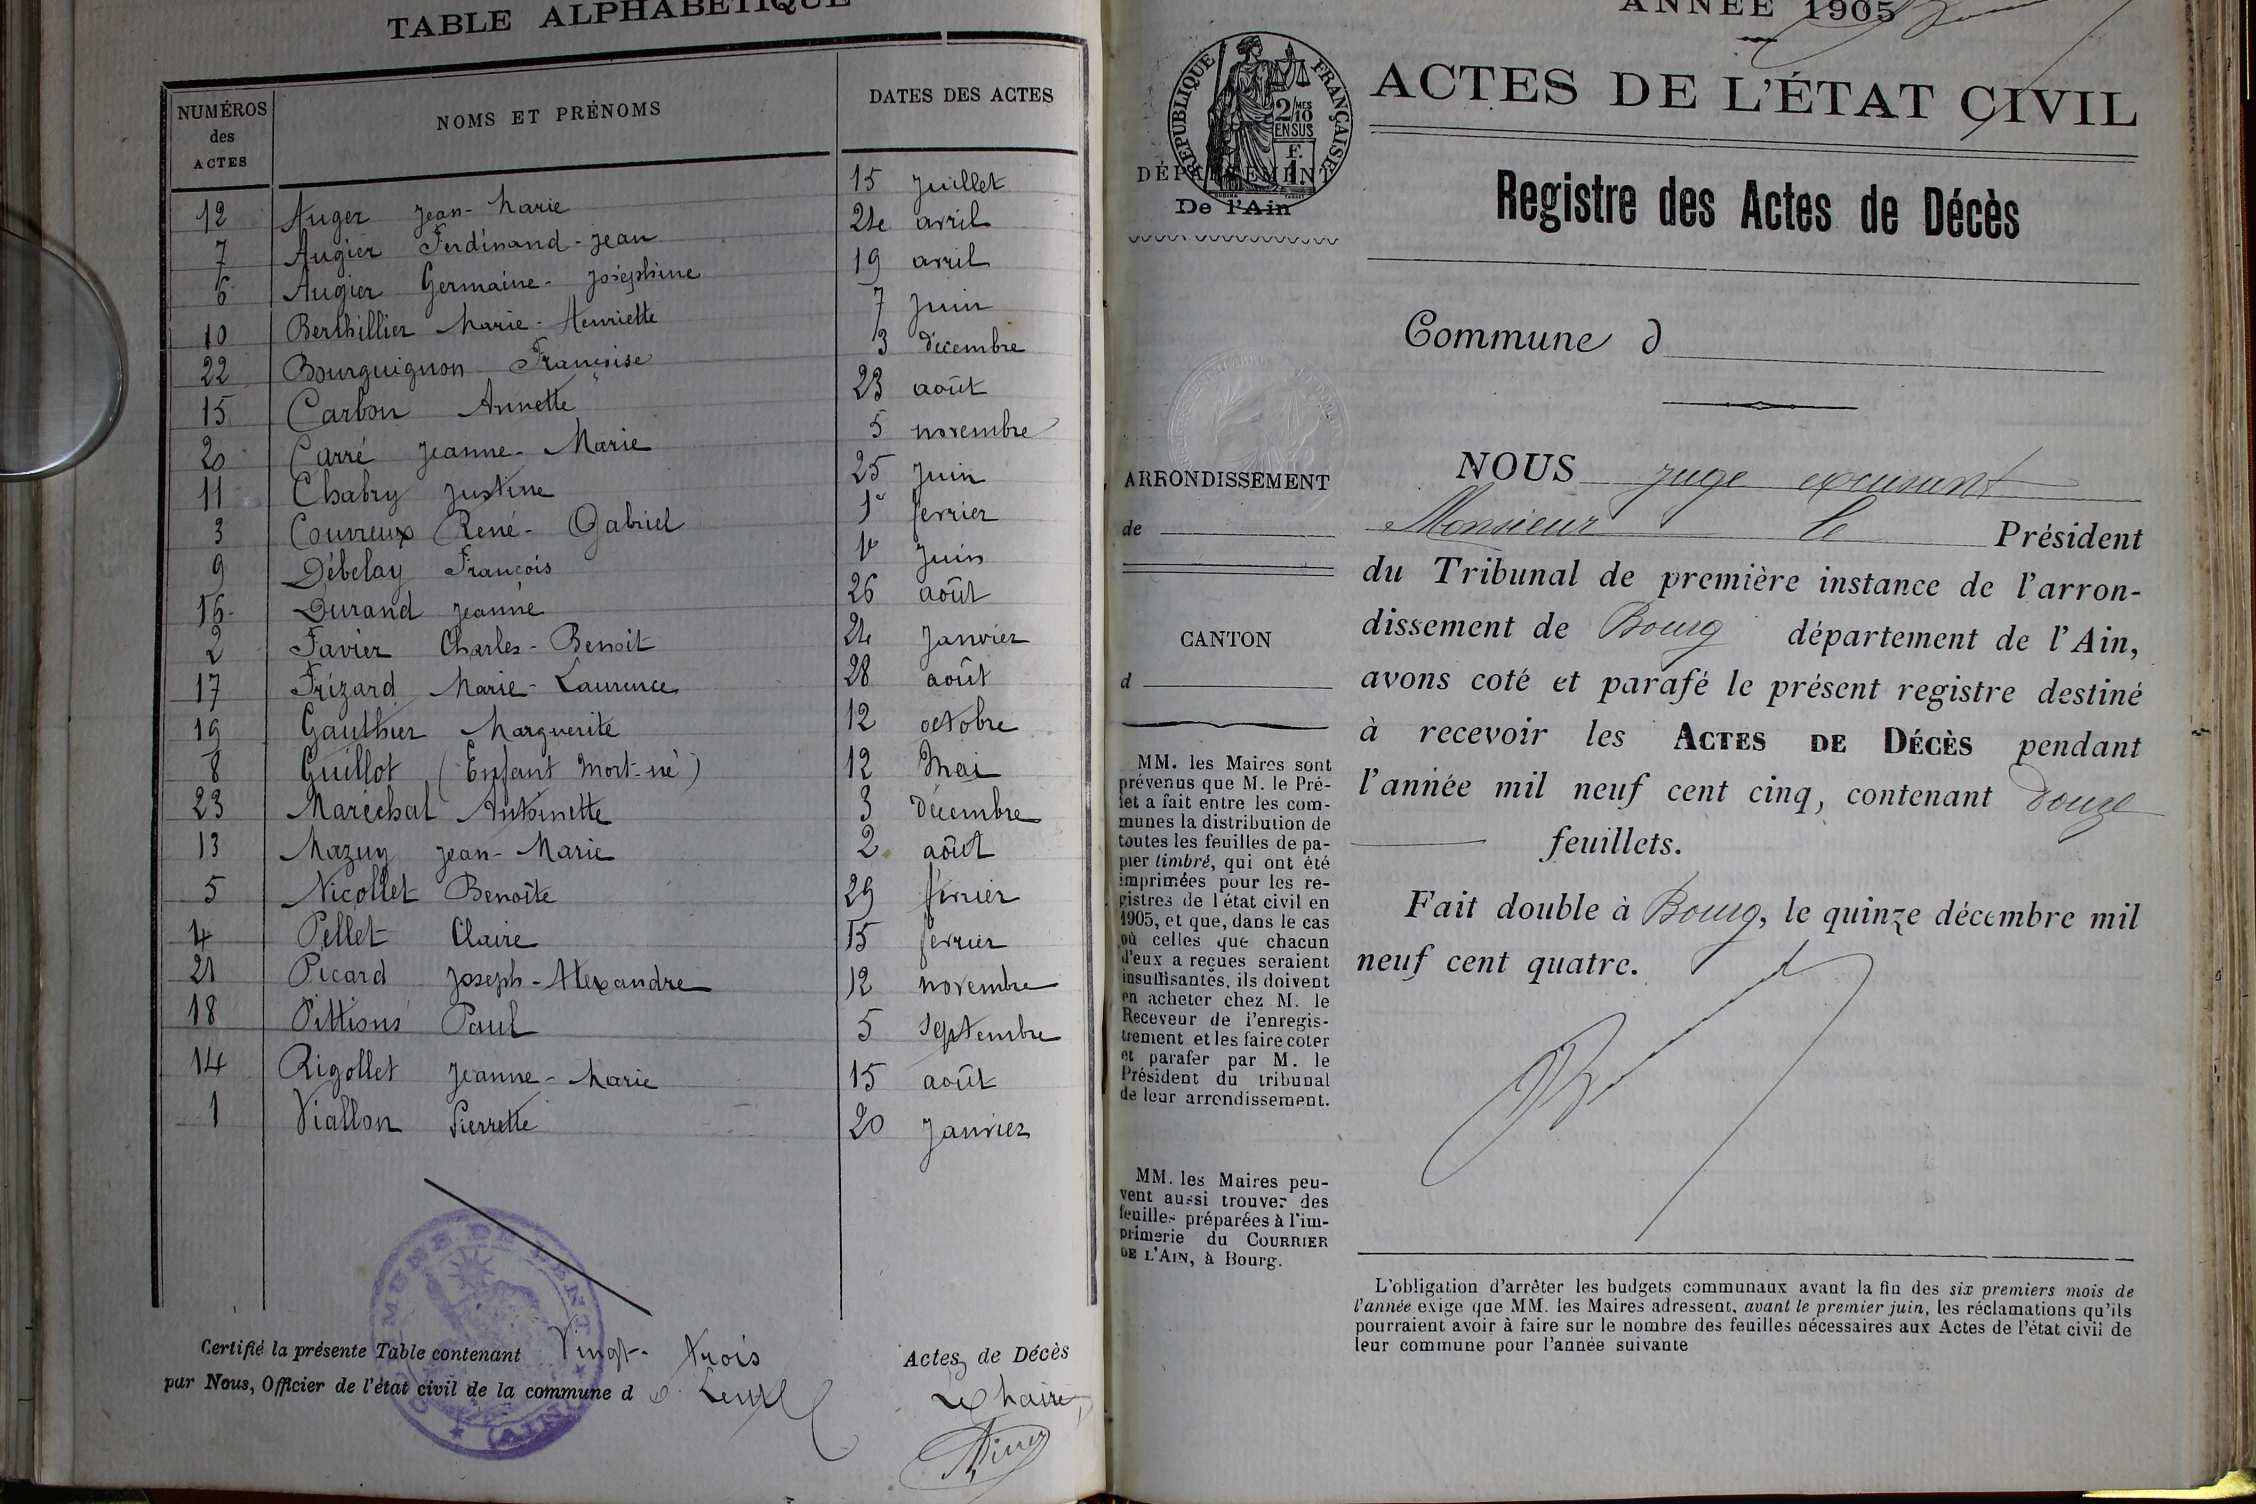 TABLE ALPHABÉTIQUE
NUMÉROS des ACTES NOMS ET PRÉNOMS DATES DES ACTES
12 Auger Jean-Marie 15 Juillet
7 Augier Ferdinand-Jean 24 avril
6 Augier Germaine-Joséphine 19 avril
10 Berthillier Marie-Henriette 7 Juin
22 Bourguignon Françoise 3 décembre
15 Carbon Annette 23 août
20 Carré Jeanne-Marie 5 novembre
11 Chabry Justine 25 Juin
3 Couvreux René-Gabriel 1er février
9 Débelay François 1er Juin
16 Durand Jeanne 26 août
2 Favier Charles-Benoit 24 Janvier
17 Frizard Marie-Laurence 28 août
19 Gauthier Marguerite 12 octobre
8 Guillot (Enfant Mort-né) 12 Mai
23 Maréchal Antoinette 3 Décembre
13 Mazuy Jean-Marie 2 août
5 Nicollet Benoîte 29 février
4 Pellet Claire 15 février
21 Picard Joseph-Alexandre 12 novembre
18 Pittioni Paul 5 Septembre
14 Rigollet Jeanne-Marie 15 août
1 Viallon Pierrette 20 Janvier
COMMUNE DE LENT
(AIN)
Certifié la présente Table contenant Vingt-trois Actes de Décès
par Nous, Officier de l'état civil de la commune d e Lent
Le Maire
ANNÉE 1905
ACTES DE L'ÉTAT CIVIL
RÉPUBLIQUE FRANÇAISE
2/10 MES
EN SUS
F.
1.
DÉPARTEMENT
De l'Ain
Registre des Actes de Décès
Commune d
ARRONDISSEMENT
de
CANTON
d
MM. les Maires sont
prévenus que M. le Pré-
fet a fait entre les com-
munes la distribution de
toutes les feuilles de pa-
pier timbré, qui ont été
imprimées pour les re-
gistres de l'état civil en
1905, et que, dans le cas
où celles que chacun
d'eux a reçues seraient
insuffisantes, ils doivent
en acheter chez M. le
Receveur de l'enregis-
trement et les faire coter
et parafer par M. le
Président du tribunal
de leur arrondissement.
MM. les Maires peu-
vent aussi trouver des
feuilles préparées à l'im-
primerie du COURRIER
DE L'AIN, à Bourg.
NOUS Juge
Monsieur le Président
du Tribunal de première instance de l'arron-
dissement de Bourg département de l'Ain,
avons coté et parafé le présent registre destiné
à recevoir les ACTES DE DÉCÈS pendant
l'année mil neuf cent cinq, contenant douze
feuillets.
Fait double à Bourg, le quinze décembre mil
neuf cent quatre.
L'obligation d'arrêter les budgets communaux avant la fin des six premiers mois de
l'année exige que MM. les Maires adressent, avant le premier juin, les réclamations qu'ils
pourraient avoir à faire sur le nombre des feuilles nécessaires aux Actes de l'état civil de
leur commune pour l'année suivante